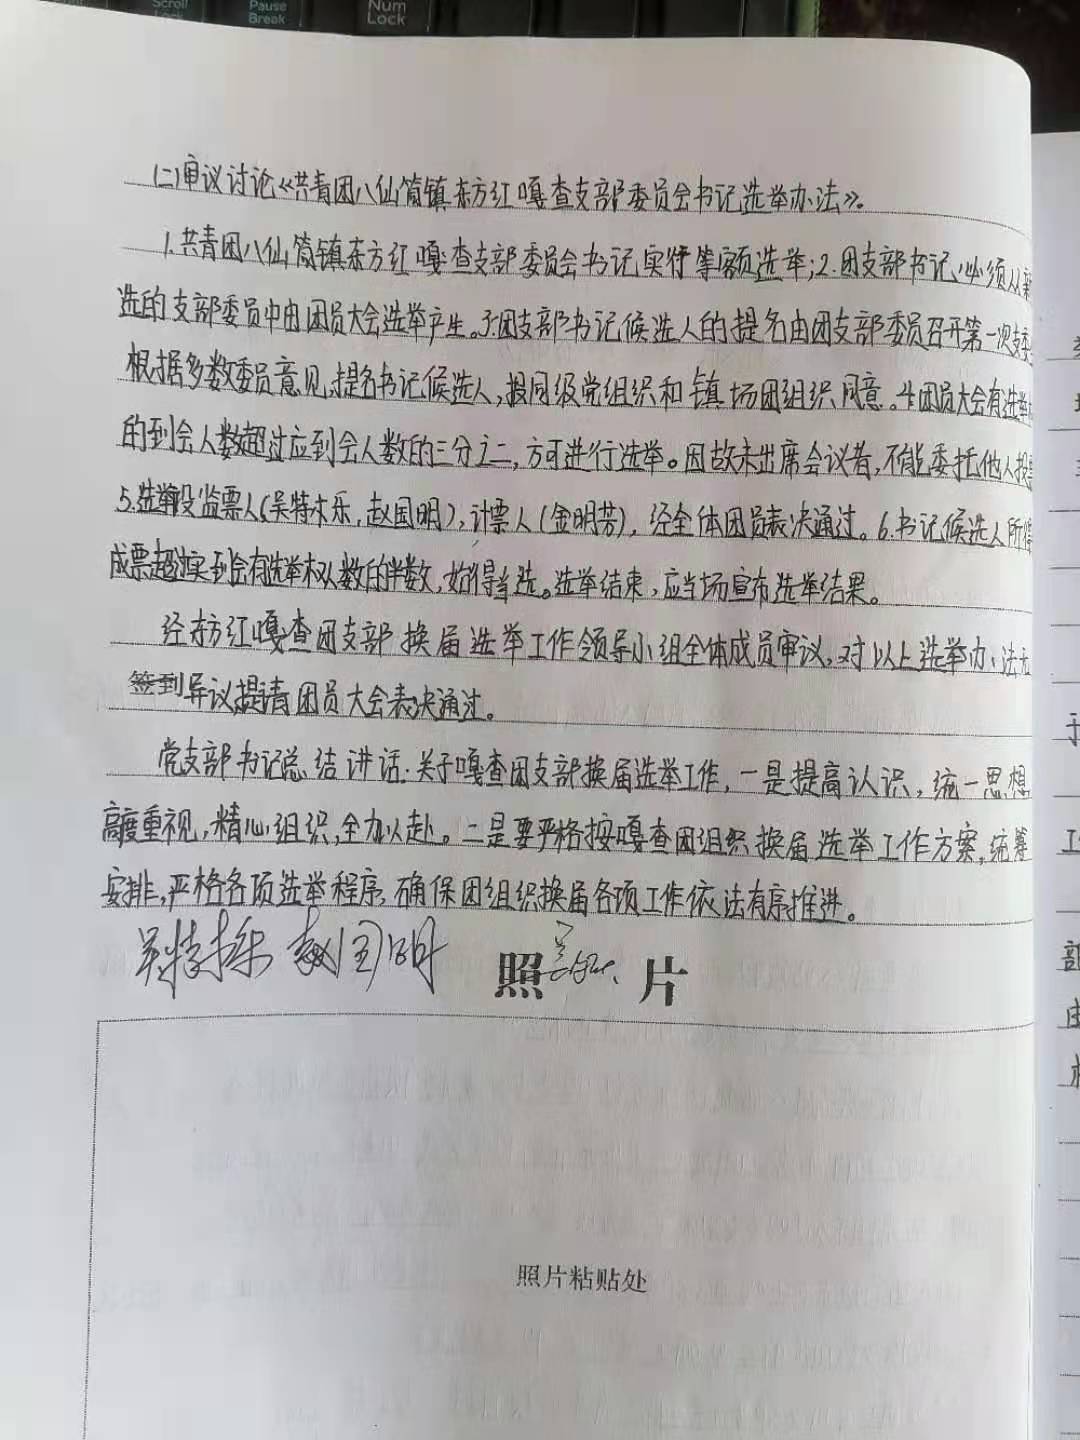 Scroll Lock
Pause Break
Num Lock
(二)审议讨论《共青团八仙筒镇东方红嘎查支部委员会书记选举办法》。
1.共青团八仙筒镇东方红嘎查支部委员会书记实行等额选举;2.团支部书记,必须从新
选的支部委员中由团员大会选举产生。3.团支部书记候选人的提名由团支部委员召开第一次支委
根据多数委员意见,提名书记候选人,报同级党组织和镇场团组织同意。4.团员大会有选举
的到会人数超过应到会人数的三分之二,方可进行选举。因故未出席会议者,不能委托他人投票
5.选举设监票人(吴特木乐,赵国明),计票人(金明芳),经全体团员表决通过。6.书记候选人所得
成票超过实到会有选举权人数的半数,始得当选。选举结束,应当场宣布选举结果。
经东方红嘎查团支部换届选举工作领导小组全体成员审议,对以上选举办法无
签到异议,提请团员大会表决通过。
党支部书记总结讲话:关于嘎查团支部换届选举工作,一是提高认识,统一思想
高度重视,精心组织,全力以赴。二是要严格按嘎查团组织换届选举工作方案,统筹
安排,严格各项选举程序,确保团组织换届各项工作依法有序推进。
赵国明
照 片
照片粘贴处
部
由